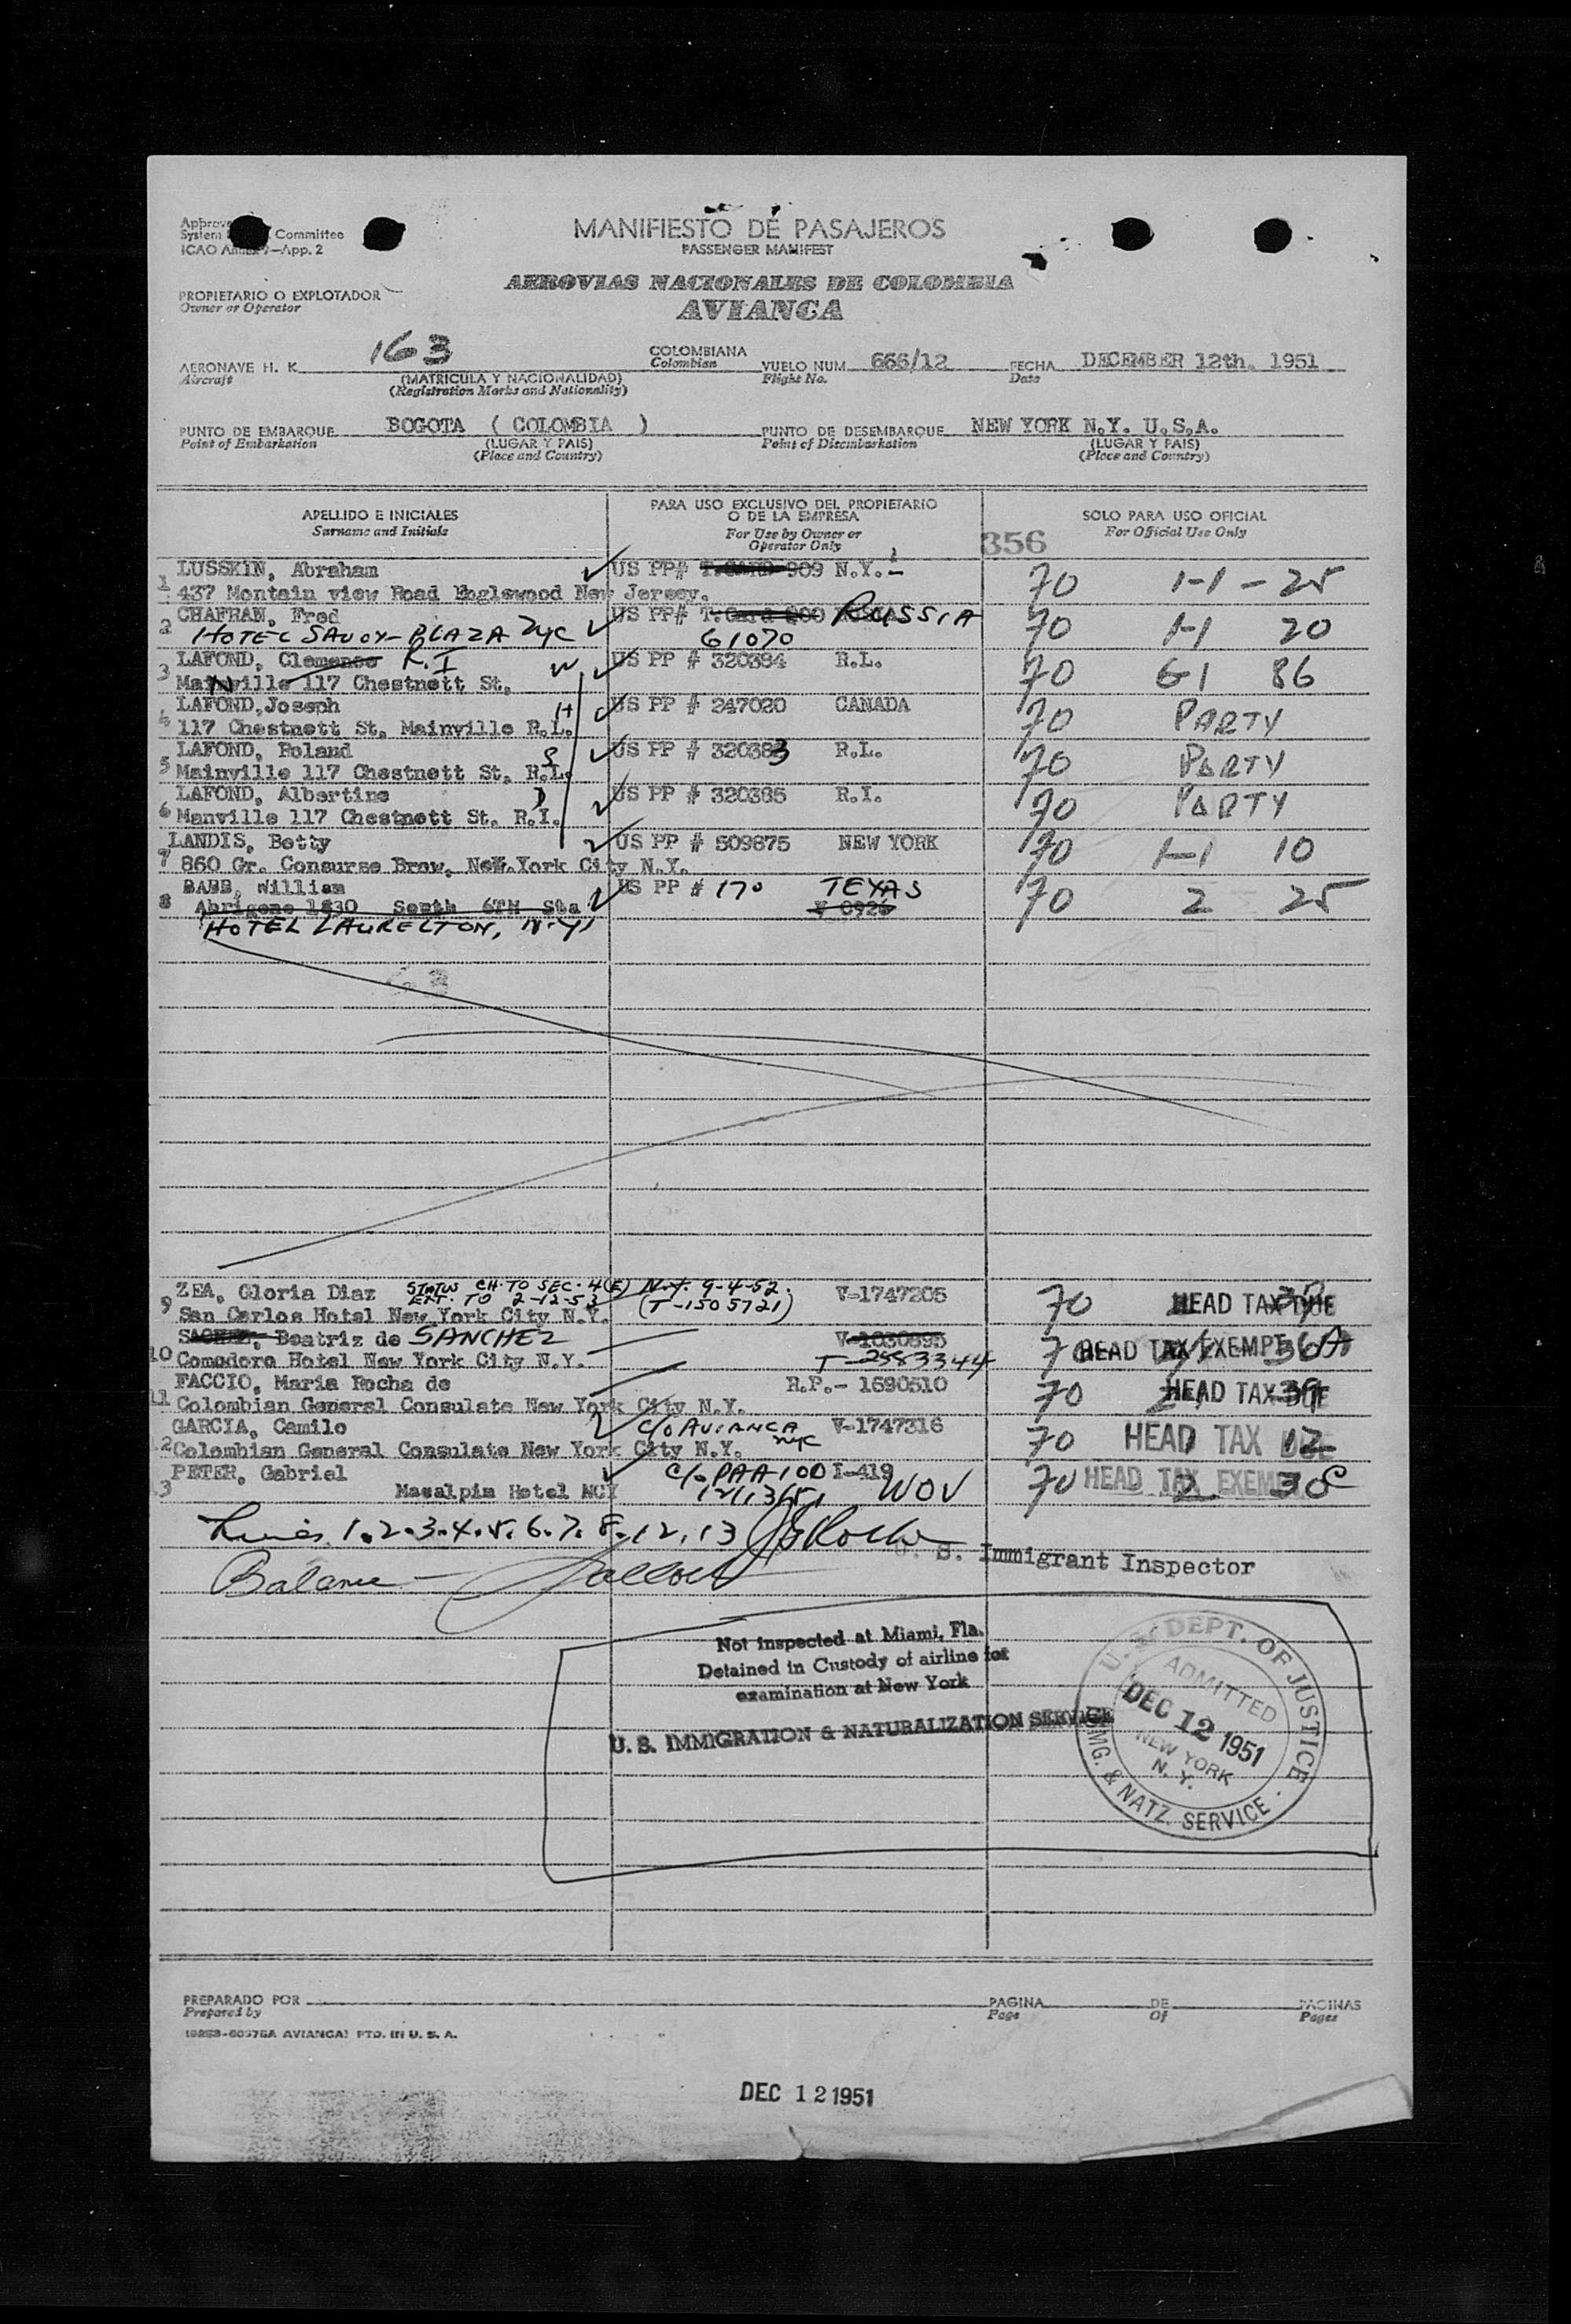 MANIFIESTO DE PASAJEROS
PASSENGER MANIFEST
System Committee
ICAO —App. 2
AEROVIAS NACIONALES DE COLOMBIA
AVIANCA
PROPIETARIO O EXPLOTADOR
Owner or Operator
AERONAVE H. K. 163 COLOMBIANA VUELO NUM. 666/12 FECHA DECEMBER 12th. 1951
Aircraft (MATRICULA Y NACIONALIDAD) Colombian Flight No. Date
(Registration Marks and Nationality)
PUNTO DE EMBARQUE BOGOTA ( COLOMBIA ) PUNTO DE DESEMBARQUE NEW YORK N.Y. U.S.A.
Point of Embarkation (LUGAR Y PAIS) Point of Disembarkation (LUGAR Y PAIS)
(Place and Country) (Place and Country)
APELLIDO E INICIALES PARA USO EXCLUSIVO DEL PROPIETARIO O DE LA EMPRESA SOLO PARA USO OFICIAL
Surname and Initials For Use by Owner or Operator Only For Official Use Only
356
1 LUSSKIN, Abraham US PP# T.CARD 909 N.Y. 70 1-1-25
437 Montain view Road Englewood New Jersey.
2 CHAFRAN, Fred US PP# T.Card 200 RUSSIA 70 1-1 20
HOTEL SAVOY-PLAZA NYC 61070
3 LAFOND, Clemense R.I W US PP # 320384 R.L. 70 6-1 86
Mainville 117 Chestnett St.
4 LAFOND, Joseph H US PP # 247020 CANADA 70 PARTY
117 Chestnett St. Mainville R.L.
5 LAFOND, Roland S US PP # 320383 R.L. 70 PARTY
Mainville 117 Chestnett St. R.L.
6 LAFOND, Albertine D US PP # 320385 R.I. 70 PARTY
Manville 117 Chestnett St. R.I.
7 LANDIS, Betty US PP # 509875 NEW YORK 70 1-1 10
860 Gr. Consurse Brow. New York City N.Y.
8 BABB, William US PP # 170 TEXAS 70 2 25
Abrigene 1830 South 6TH Sta
HOTEL LAURELTON, N.Y.
9 ZEA, Gloria Diaz STATUS CH. TO SEC. 4(E) N.Y. 9-4-52. V-1747205 70 HEAD TAX DUE
EXT. TO 2-12-53 (T-1505721)
San Carlos Hotel New York City N.Y.
10 Beatriz de SANCHEZ V-1030895 70 HEAD TAX EXEMPT
Comodoro Hotel New York City N.Y. T-2583344
11 FACCIO, Maria Rocha de R.P.- 1690510 70 HEAD TAX DUE
Colombian General Consulate New York City N.Y.
12 GARCIA, Camilo C/O AVIANCA NYC V-1747316 70 HEAD TAX 12
Colombian General Consulate New York City N.Y.
3 PETER, Gabriel C/o PAA 100 I-419 WOV 70 HEAD TAX EXEMPT
Macalpin Hotel NCY 12/13/51
Lines 1.2.3.4.5.6.7.8.12.13
U. S. Immigrant Inspector
Balance
Not inspected at Miami, Fla.
Detained in Custody of airline for
examination at New York
U. S. IMMIGRATION & NATURALIZATION SERVICE
U. S. DEPT. OF JUSTICE
ADMITTED
DEC 12 1951
NEW YORK
N. Y.
IMMG. & NATZ. SERVICE
PREPARADO POR PAGINA DE PAGINAS
Prepared by Page Of Pages
AVIANCA: PTD. IN U. S. A.
DEC 12 1951